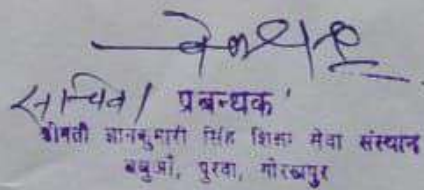 सचिव / प्रबन्धक
श्रीमती ज्ञानकुमारी सिंह शिक्षा सेवा संस्थान
पुरवा, गोरखपुर